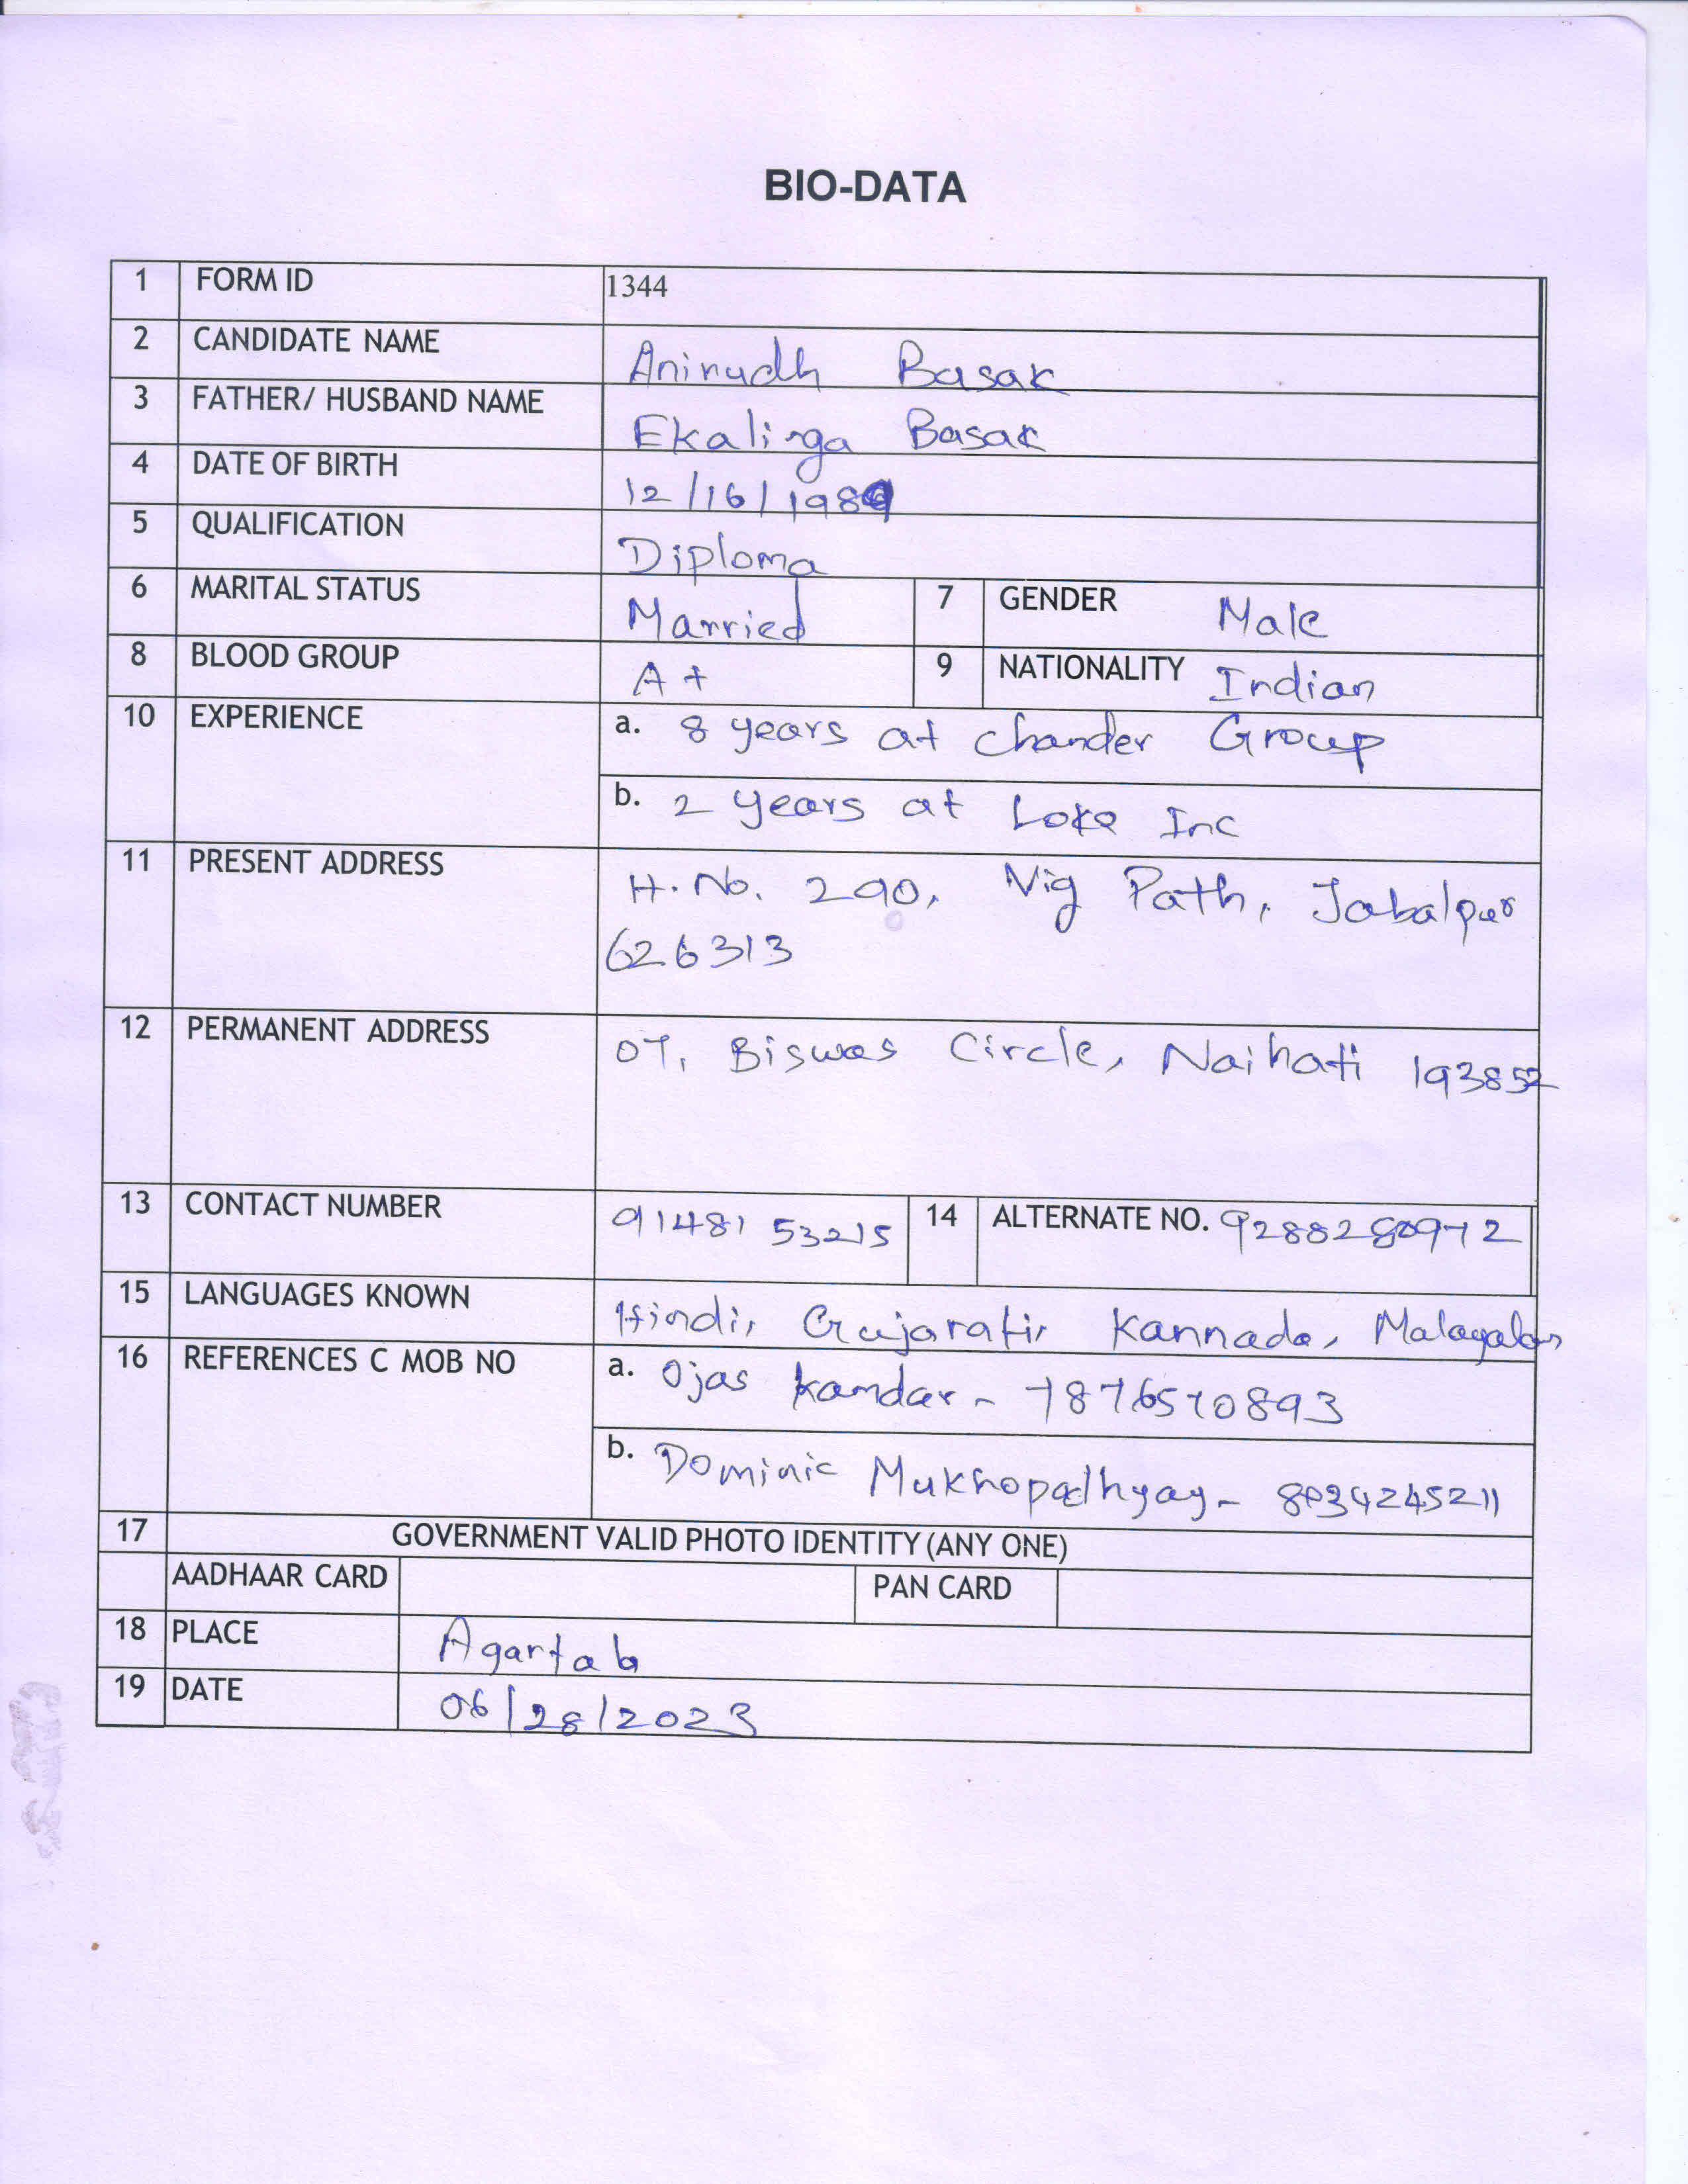 BIO-DATA
1 FORM ID 1344
2 CANDIDATE NAME Anirudh Basak
3 FATHER/ HUSBAND NAME Ekalinga Basak
4 DATE OF BIRTH 12/16/1989
5 QUALIFICATION Diploma
6 MARITAL STATUS Married 7 GENDER Male
8 BLOOD GROUP A+ 9 NATIONALITY Indian
10 EXPERIENCE a. 8 years at Chander Group
b. 2 years at Loke Inc
11 PRESENT ADDRESS H.No. 290, Vig Path, Jabalpur
626313
12 PERMANENT ADDRESS 07, Biswas Circle, Naihati 193852
13 CONTACT NUMBER 91481 53215 14 ALTERNATE NO. 9288280972
15 LANGUAGES KNOWN Hindi, Gujarati, Kannada, Malayalam
16 REFERENCES C MOB NO a. Ojas Kamdar - 7876570893
b. Dominic Mukhopadhyay - 8034245211
17 GOVERNMENT VALID PHOTO IDENTITY (ANY ONE)
AADHAAR CARD PAN CARD
18 PLACE
19 DATE 06/28/2023